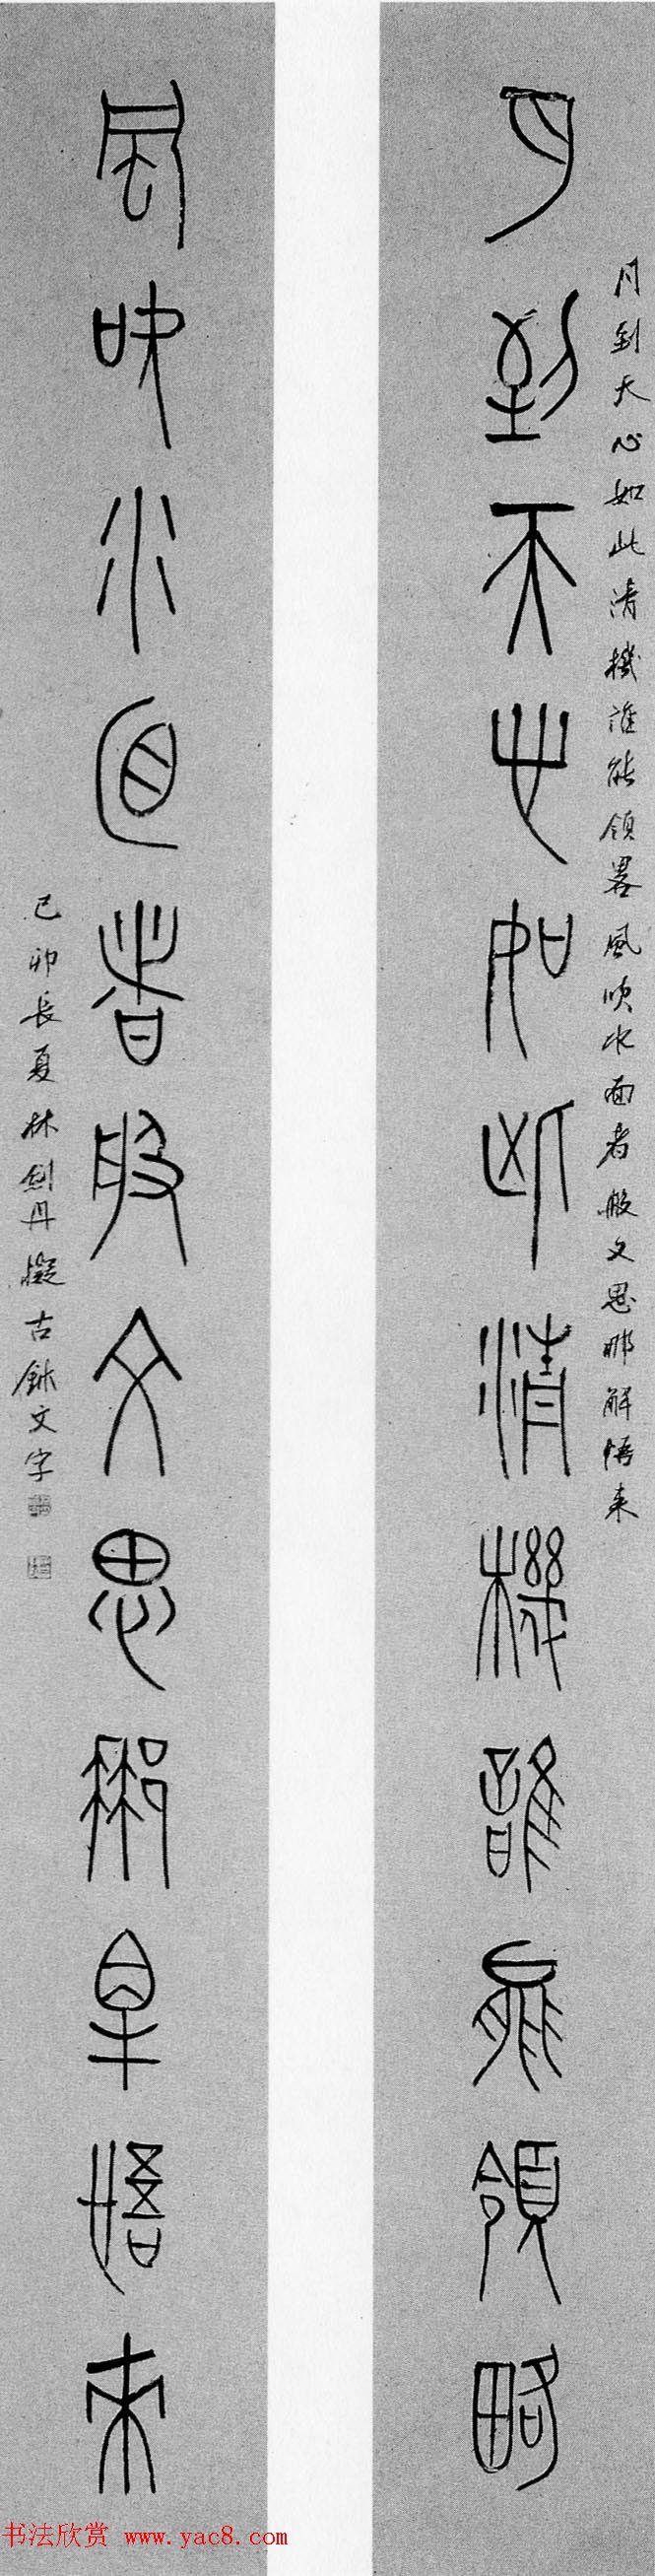 月到天心如此清機誰能領略
月到天心如此清機誰能領畧風吹水面者般文思那解悟來
風吹水面者般文思那解悟來
己卯長夏林劍丹擬古鉥文字
书法欣赏 www.yac8.com